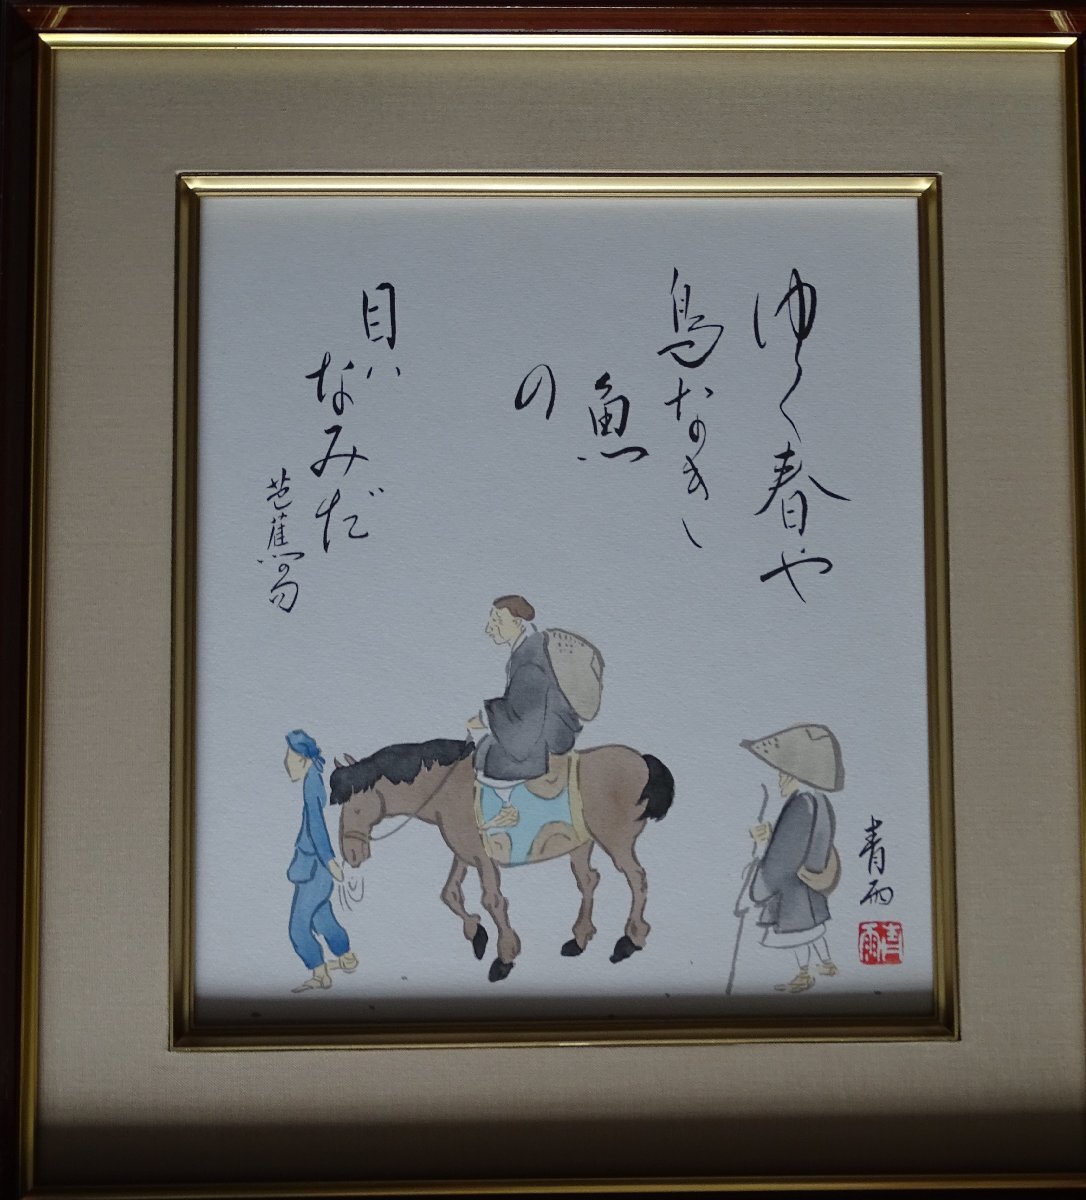 ゆく春や
鳥なき
魚
の
目ハ
なみだ
芭蕉の句
青雨
青雨